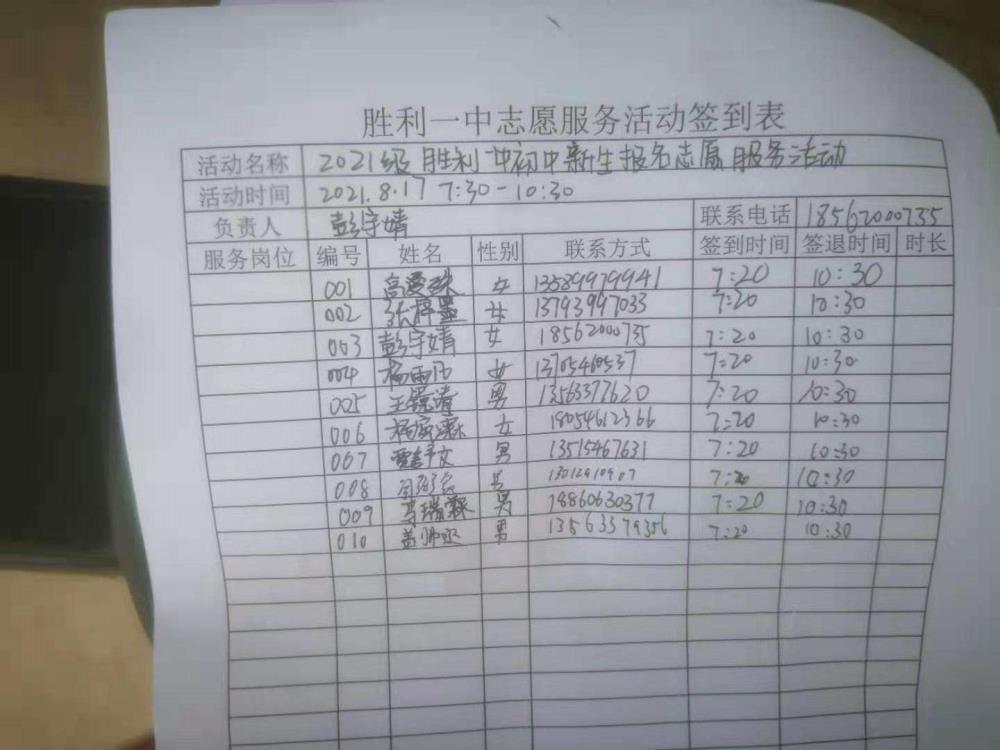 胜利一中志愿服务活动签到表
活动名称 2021级胜利一中初中新生报名志愿服务活动
活动时间 2021.8.17 7:30-10:30
负责人 彭宇婧 联系电话 18562000735
服务岗位 编号 姓名 性别 联系方式 签到时间 签退时间 时长
001 女 13589979941 7:20 10:30
002 女 13793997033 7:20 10:30
003 彭宇婧 女 18562000735 7:20 10:30
004 女 13705460537 7:20 10:30
005 男 13563377620 7:20 10:30
006 女 18054612366 7:20 10:30
007 男 13515467631 7:20 10:30
008 7:20 10:30
009 马瑞霖 男 18860630377 7:20 10:30
010 男 13563379356 7:20 10:30